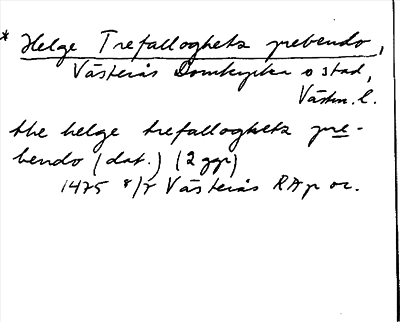 * Helge Trefalloghets prebendo,
Västerås Domkyrka o stad,
Västm. l.
the helge trefalloghets pre-
bendo (dat.) (2 ggr)
1475 8/5 Västerås RAp or.